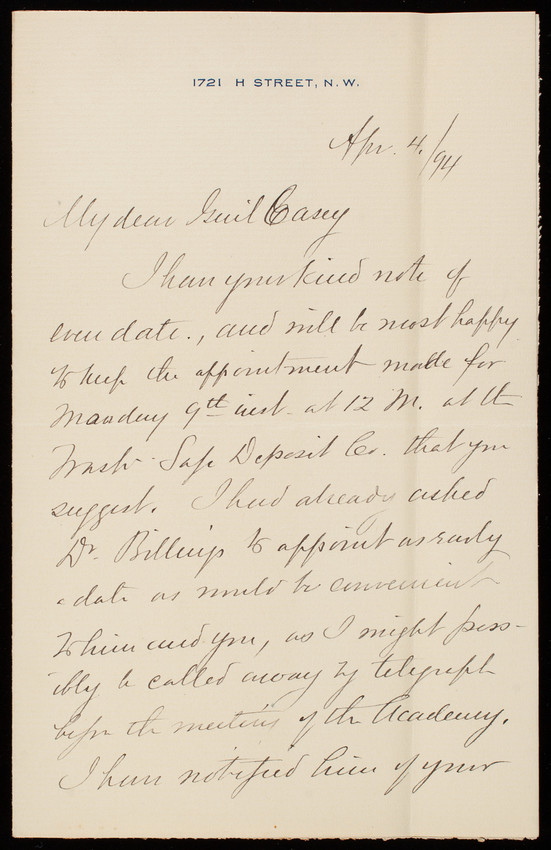 1721 H STREET, N.W.
Apr. 4/94
My dear Genl Casey
I have your kind note of
even date., and will be most happy
to keep the appointment made for
Monday 9th inst. at 12 M. at the
Wash. Safe Deposit Co. that you
suggest. I had already asked
Dr. Billings to appoint as early
a date as would be convenient
to him and you, as I might poss-
ibly be called away by telegraph
before the meeting of the Academy.
I have notified him of your